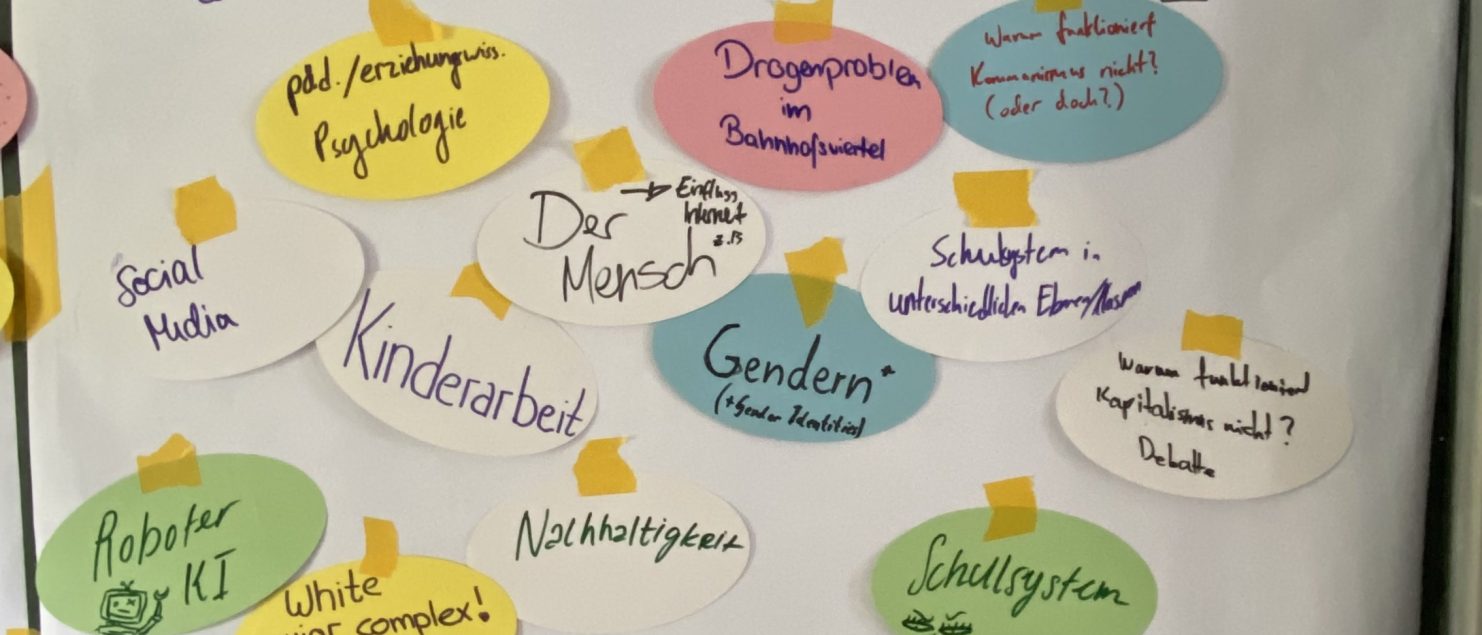 päd./erziehungswiss.
Psychologie
Drogenproblem
im
Bahnhofsviertel
Warum funktioniert
Kommunismus nicht?
(oder doch?)
Der
Mensch
→ Einfluss
Internet
z.B
Social
Media
Kinderarbeit
Gendern*
(+Gender Identities)
Schulsystem in
unterschiedlichen
Warum funktioniert
Kapitalismus nicht?
Debatte
Roboter
KI
Nachhaltigkeit
White
complex!
Schulsystem